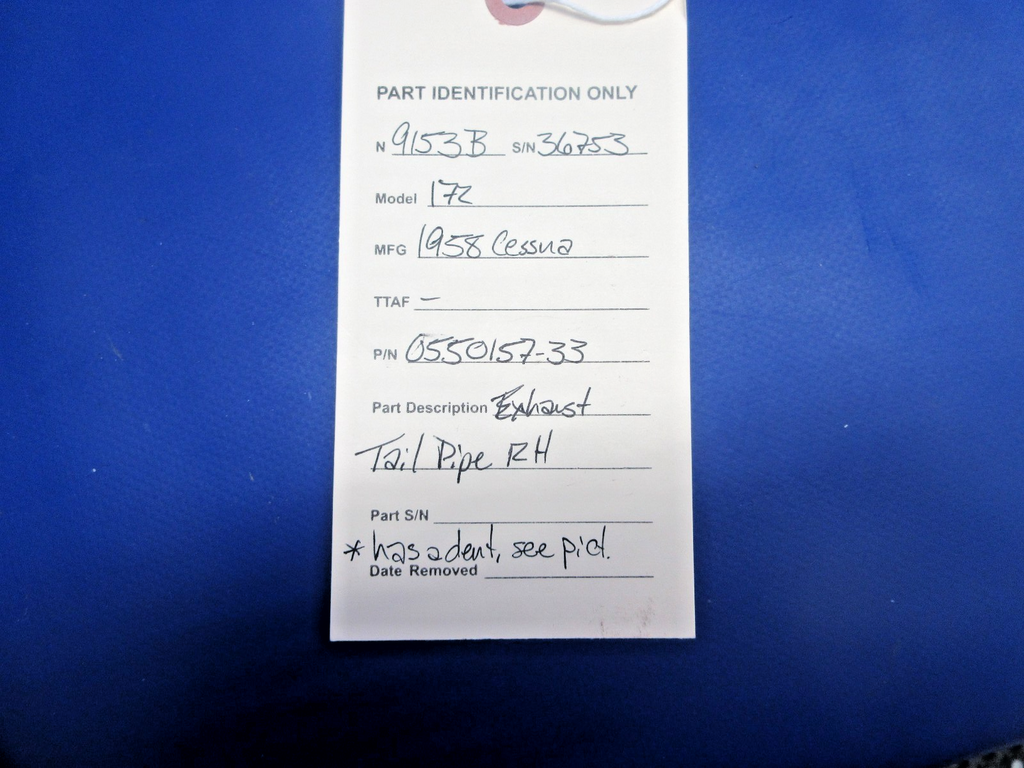 PART IDENTIFICATION ONLY
N 9153B S/N 36753
Model 172
MFG 1958 Cessna
TTAF –
P/N 0550157-33
Part Description Exhaust
Tail Pipe RH
Part S/N
* has a dent, see pict.
Date Removed